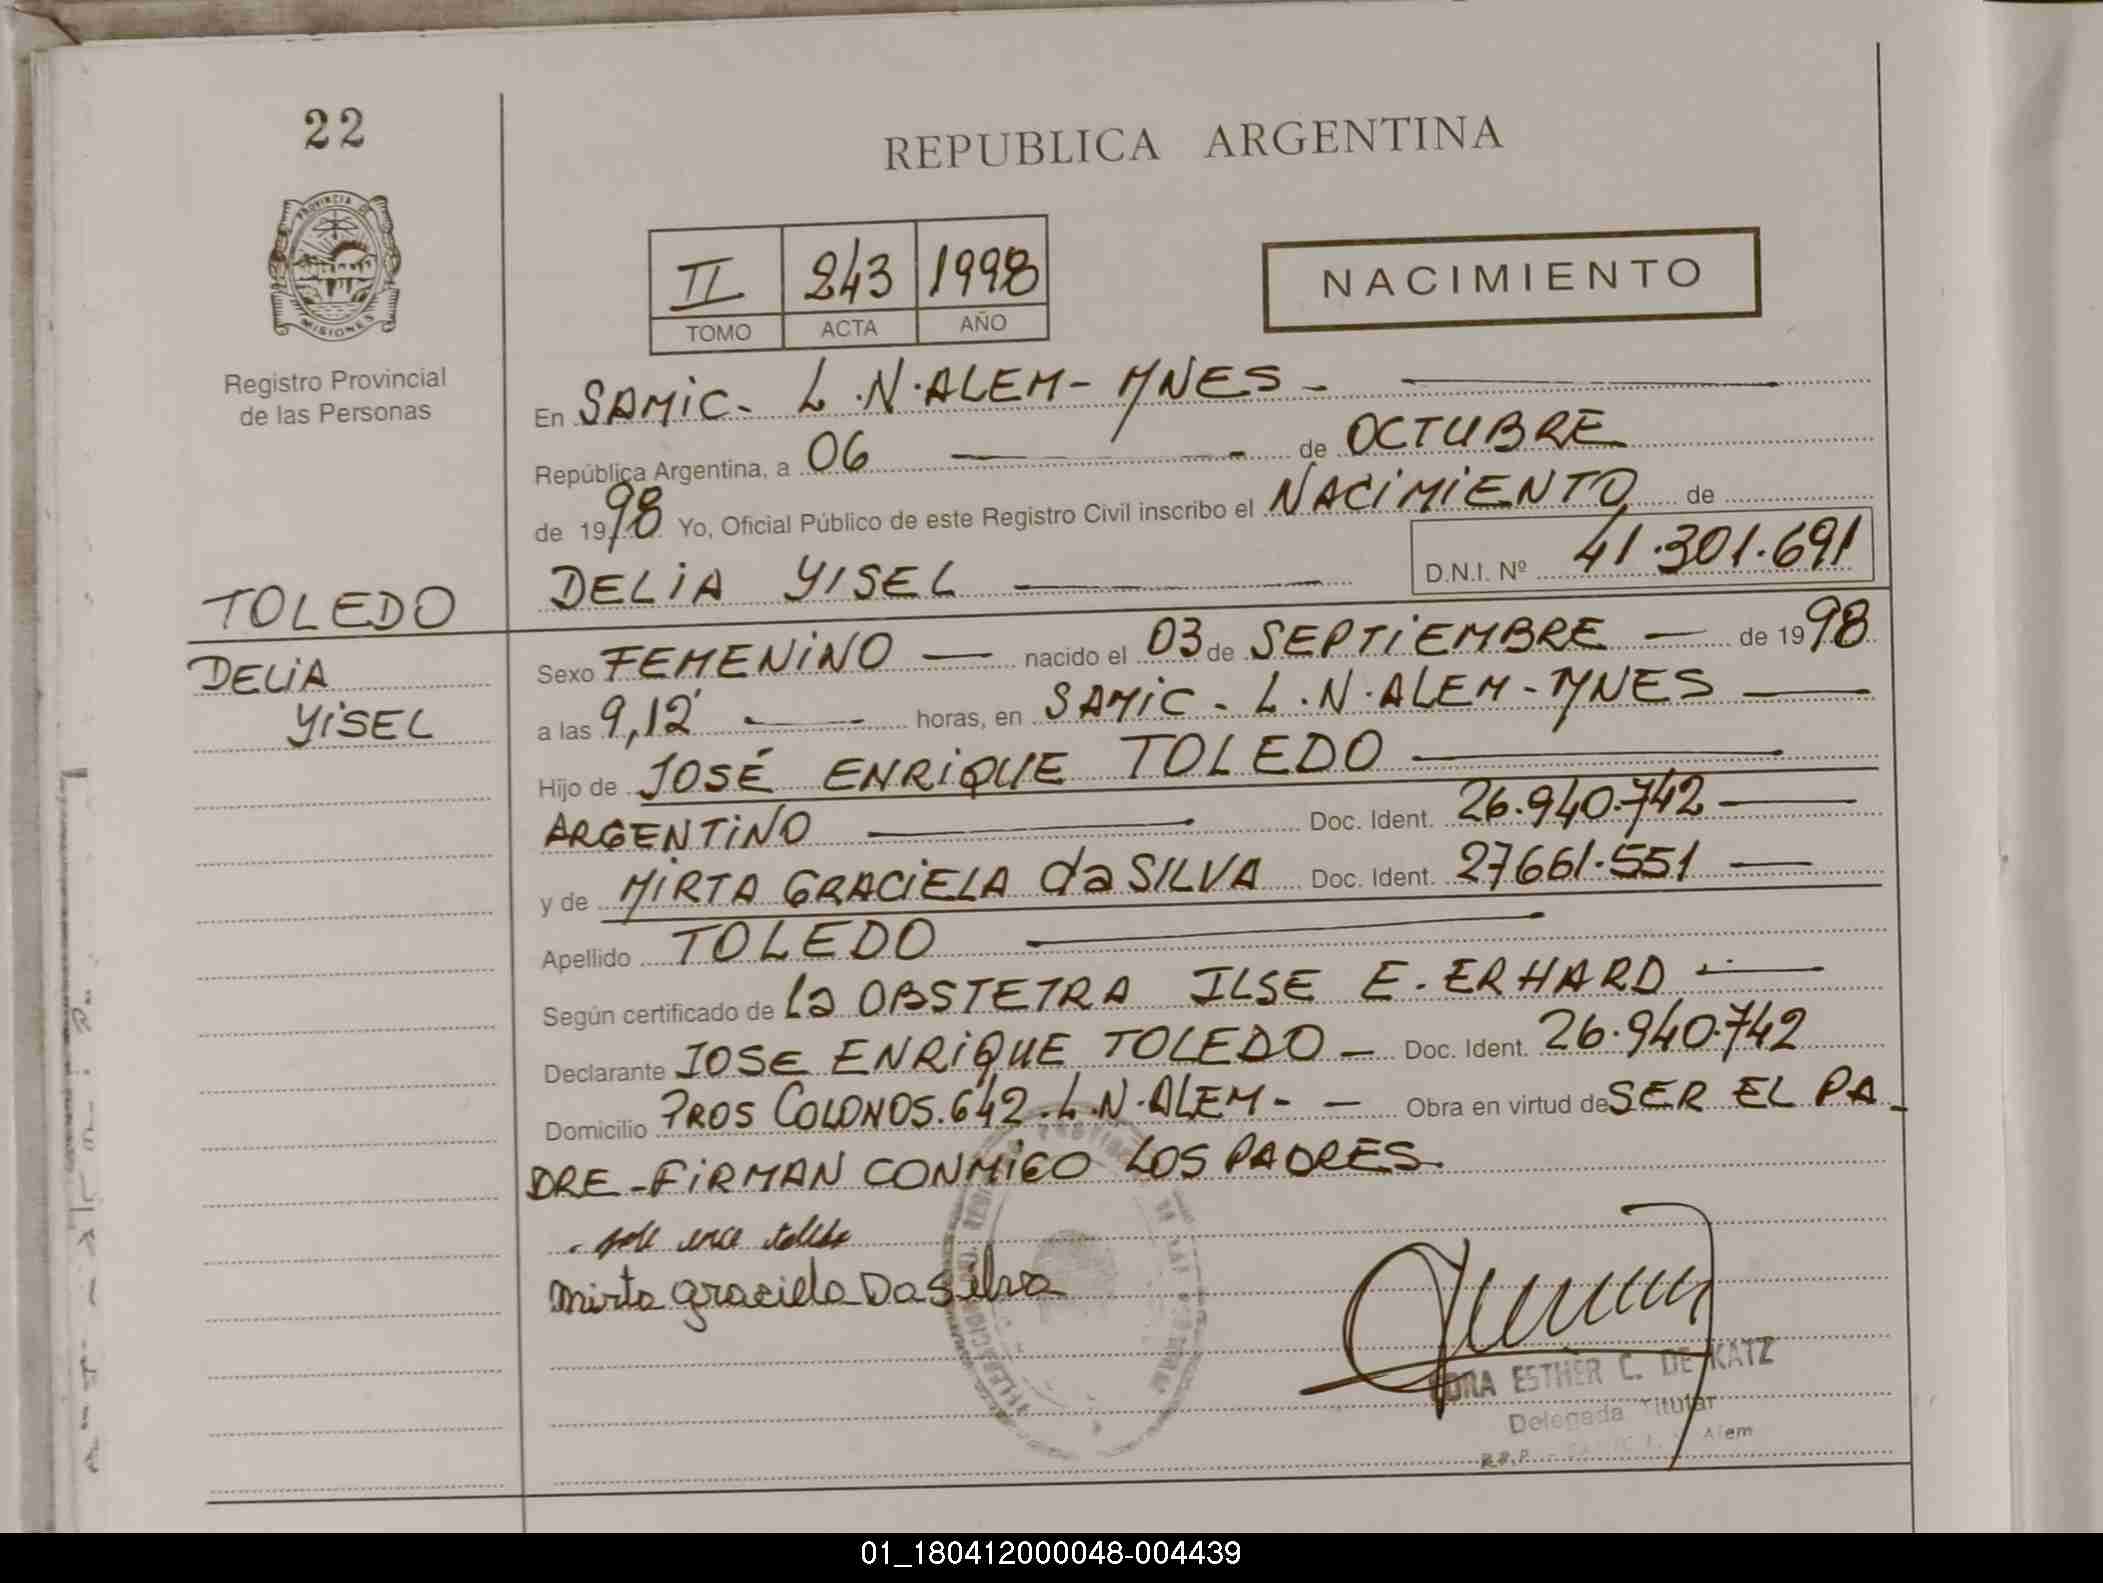 22
REPUBLICA ARGENTINA
PROVINCIA DE
MISIONES
II 243 1998
TOMO ACTA AÑO
NACIMIENTO
Registro Provincial
de las Personas
En SAMIC- L.N.ALEM- MNES -
República Argentina, a 06 de OCTUBRE
de 1998 Yo, Oficial Público de este Registro Civil inscribo el NACIMIENTO de
DELIA YISEL D.N.I. Nº 41.301.691
TOLEDO
DELIA
YISEL
Sexo FEMENINO nacido el 03 de SEPTIEMBRE de 1998
a las 9,12' horas, en SAMIC - L.N.ALEM - MNES
Hijo de JOSÉ ENRIQUE TOLEDO
ARGENTINO Doc. Ident. 26.940.742
y de MIRTA GRACIELA da SILVA Doc. Ident. 27661.551
Apellido TOLEDO
Según certificado de la OBSTETRA ILSE E. ERHARD
Declarante JOSE ENRIQUE TOLEDO - Doc. Ident. 26.940.742
Domicilio PROS COLONOS.642.L.N.ALEM- - Obra en virtud de SER EL PA-
DRE - FIRMAN CONMIGO LOS PADRES.
Mirta Graciela Da Silva
ESTHER C. DE KATZ
Delegada Titular
Alem
01_180412000048-004439